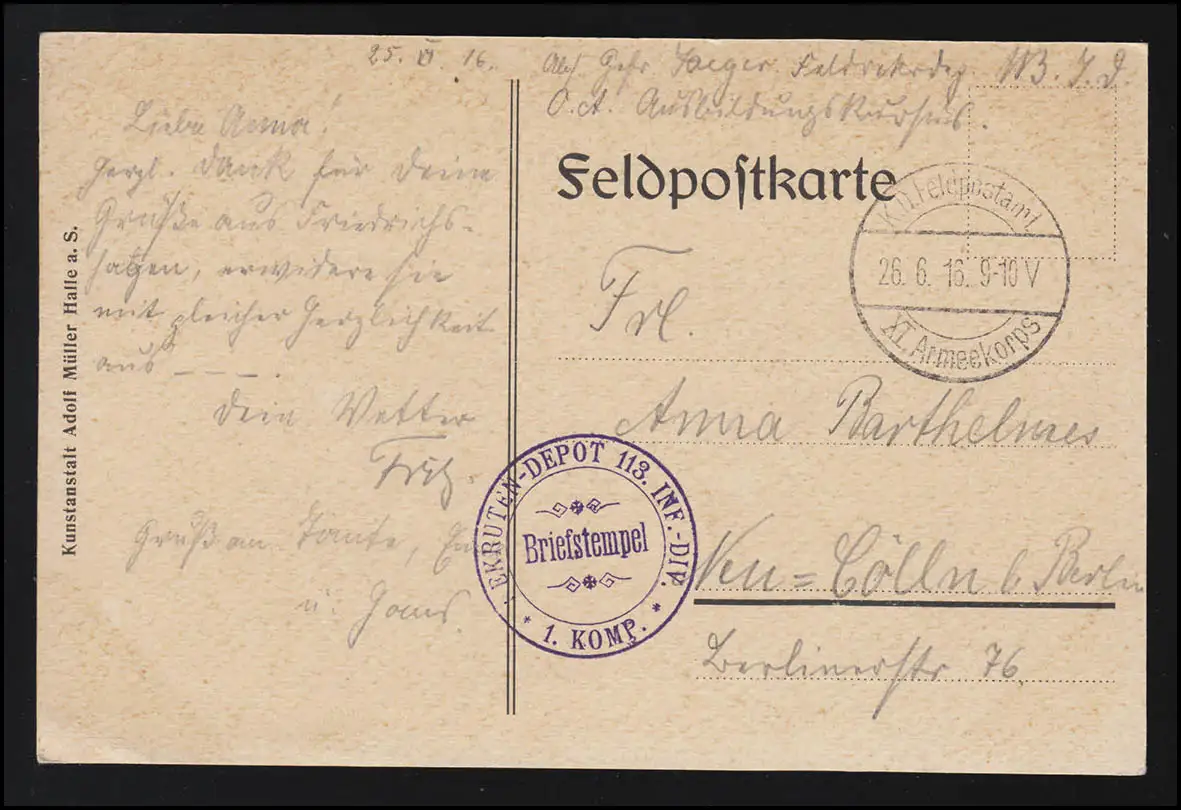 25. VI. 16.
Liebe Anna!
Herzl. Dank für Deine
Grüße aus Friedrichs-
hagen, erwidere sie
mit gleicher Herzlichkeit
aus _ _ _ .
Dein Vetter
Fritz.
Gruß an Tante,
u. Hans.
Kunstanstalt Adolf Müller Halle a. S.
Abs. Gefr Jaeger Feldrekrdep. 113. I. D.
Ausbildungskursus.
Feldpostkarte
K.D. Feldpostamt
26. 6. 16. 9-10 V
XI. Armeekorps
Frl.
Anna Barthelmes
EKRUTEN-DEPOT 113. INF.-DIV.
Briefstempel
* 1. KOMP. *
Neu=Cölln b. Berlin
Berlinerstr 76.